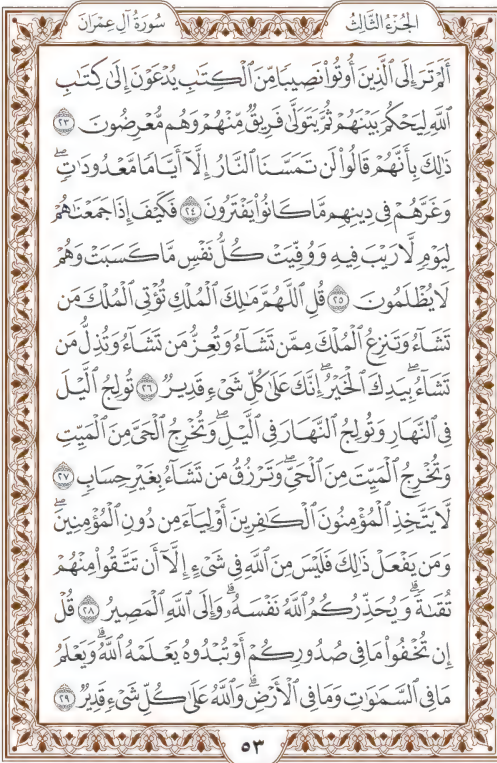 الجُزْءُ الثَّالِثُ سُورَةُ آلِ عِمْرَانَ
أَلَمْ تَرَ إِلَى ٱلَّذِينَ أُوتُوا۟ نَصِيبًا مِّنَ ٱلْكِتَٰبِ يُدْعَوْنَ إِلَىٰ كِتَٰبِ
ٱللَّهِ لِيَحْكُمَ بَيْنَهُمْ ثُمَّ يَتَوَلَّىٰ فَرِيقٌ مِّنْهُمْ وَهُم مُّعْرِضُونَ ٢٣
ذَٰلِكَ بِأَنَّهُمْ قَالُوا۟ لَن تَمَسَّنَا ٱلنَّارُ إِلَّآ أَيَّامًا مَّعْدُودَٰتٍ ۖ
وَغَرَّهُمْ فِى دِينِهِم مَّا كَانُوا۟ يَفْتَرُونَ ٢٤ فَكَيْفَ إِذَا جَمَعْنَٰهُمْ
لِيَوْمٍ لَّا رَيْبَ فِيهِ وَوُفِّيَتْ كُلُّ نَفْسٍ مَّا كَسَبَتْ وَهُمْ
لَا يُظْلَمُونَ ٢٥ قُلِ ٱللَّهُمَّ مَٰلِكَ ٱلْمُلْكِ تُؤْتِى ٱلْمُلْكَ مَن
تَشَآءُ وَتَنزِعُ ٱلْمُلْكَ مِمَّن تَشَآءُ وَتُعِزُّ مَن تَشَآءُ وَتُذِلُّ مَن
تَشَآءُ ۖ بِيَدِكَ ٱلْخَيْرُ ۖ إِنَّكَ عَلَىٰ كُلِّ شَىْءٍ قَدِيرٌ ٢٦ تُولِجُ ٱلَّيْلَ
فِى ٱلنَّهَارِ وَتُولِجُ ٱلنَّهَارَ فِى ٱلَّيْلِ ۖ وَتُخْرِجُ ٱلْحَىَّ مِنَ ٱلْمَيِّتِ
وَتُخْرِجُ ٱلْمَيِّتَ مِنَ ٱلْحَىِّ ۖ وَتَرْزُقُ مَن تَشَآءُ بِغَيْرِ حِسَابٍ ٢٧
لَّا يَتَّخِذِ ٱلْمُؤْمِنُونَ ٱلْكَٰفِرِينَ أَوْلِيَآءَ مِن دُونِ ٱلْمُؤْمِنِينَ ۖ
وَمَن يَفْعَلْ ذَٰلِكَ فَلَيْسَ مِنَ ٱللَّهِ فِى شَىْءٍ إِلَّآ أَن تَتَّقُوا۟ مِنْهُمْ
تُقَىٰةً ۗ وَيُحَذِّرُكُمُ ٱللَّهُ نَفْسَهُۥ ۗ وَإِلَى ٱللَّهِ ٱلْمَصِيرُ ٢٨ قُلْ
إِن تُخْفُوا۟ مَا فِى صُدُورِكُمْ أَوْ تُبْدُوهُ يَعْلَمْهُ ٱللَّهُ ۗ وَيَعْلَمُ
مَا فِى ٱلسَّمَٰوَٰتِ وَمَا فِى ٱلْأَرْضِ ۗ وَٱللَّهُ عَلَىٰ كُلِّ شَىْءٍ قَدِيرٌ ٢٩
٥٣